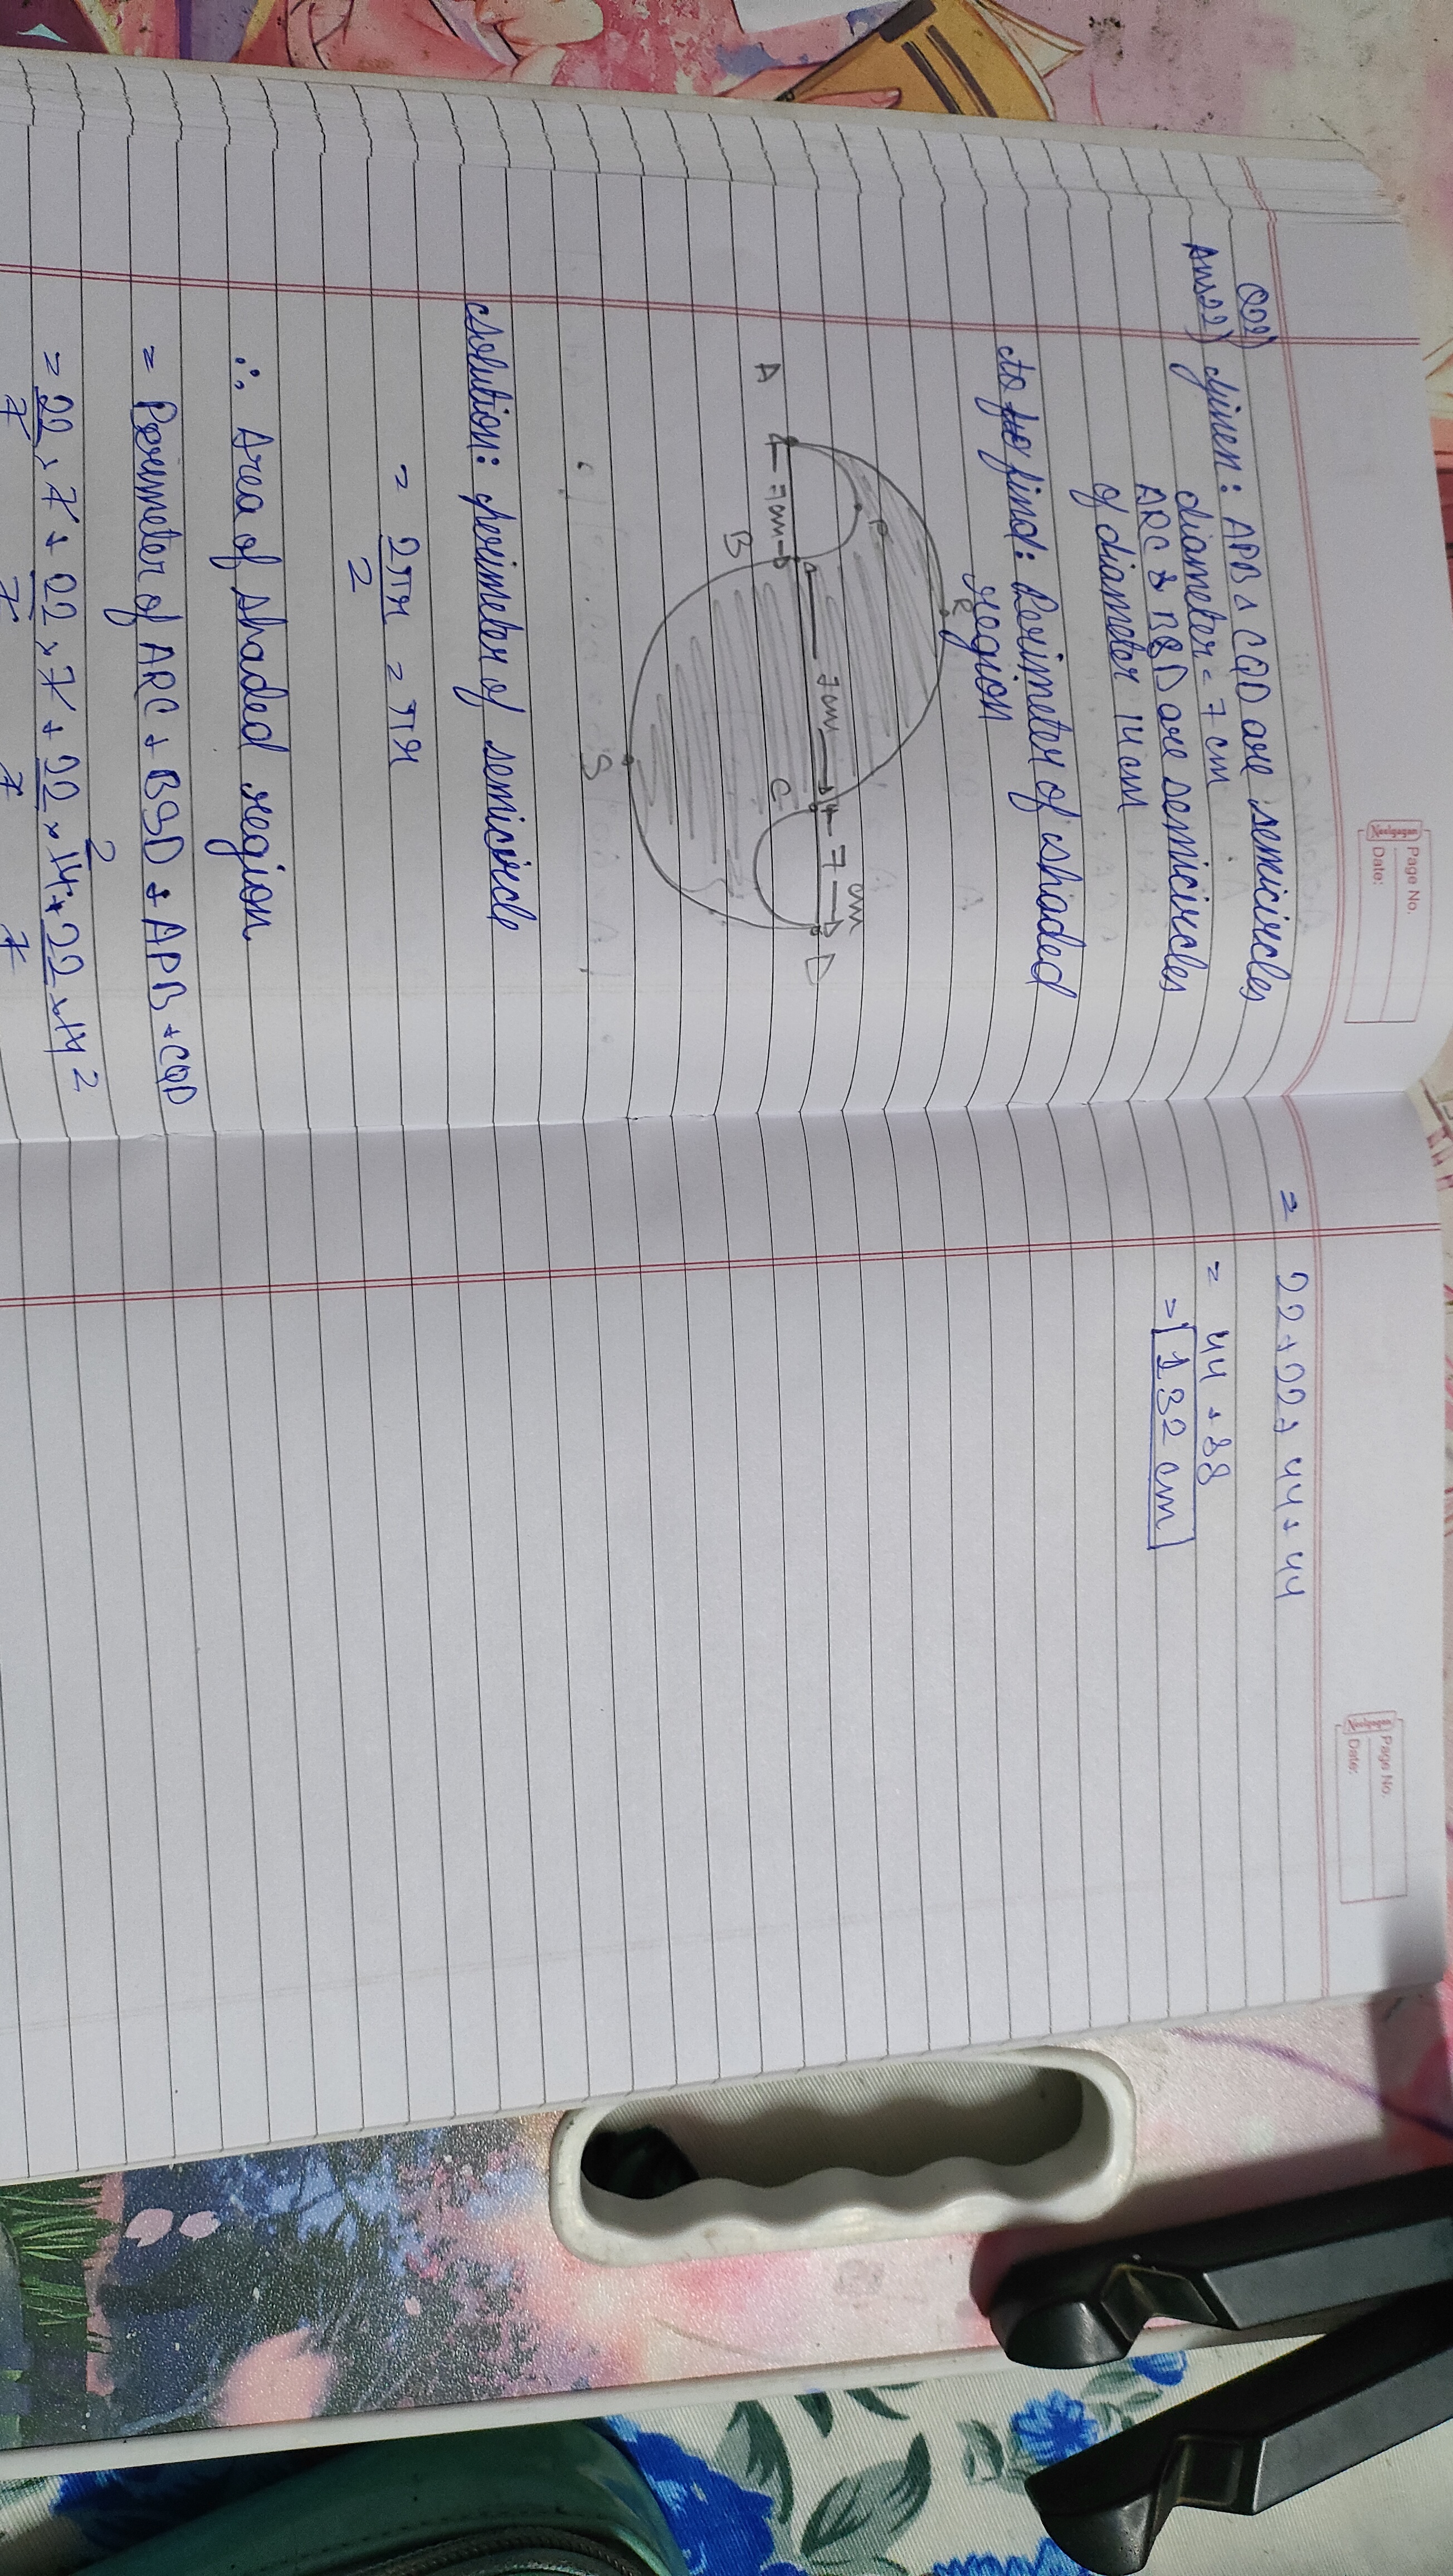 Neelgagan
Page No.
Date:
Q22)
Ans22) Given: APB & CQD are semicircles
diameter = 7 cm
ARC & BSD are semicircles
of diameter 14 cm
To find: Perimeter of shaded
region
R
P
A
← 7cm →
B
← 7cm →
C
← 7 cm →
D
S
Solution: Perimeter of semicircle
= 2πr/2 = πr
∴ Area of shaded region
= Perimeter of ARC + BSD + APB + CQD
= 22/7 × 7 + 22/7 × 7 + 22/7 × 14 2 + 22/7 × 14 2
Neelgagan
Page No.
Date:
= 22 + 22 + 44 + 44
= 44 + 88
= 132 cm